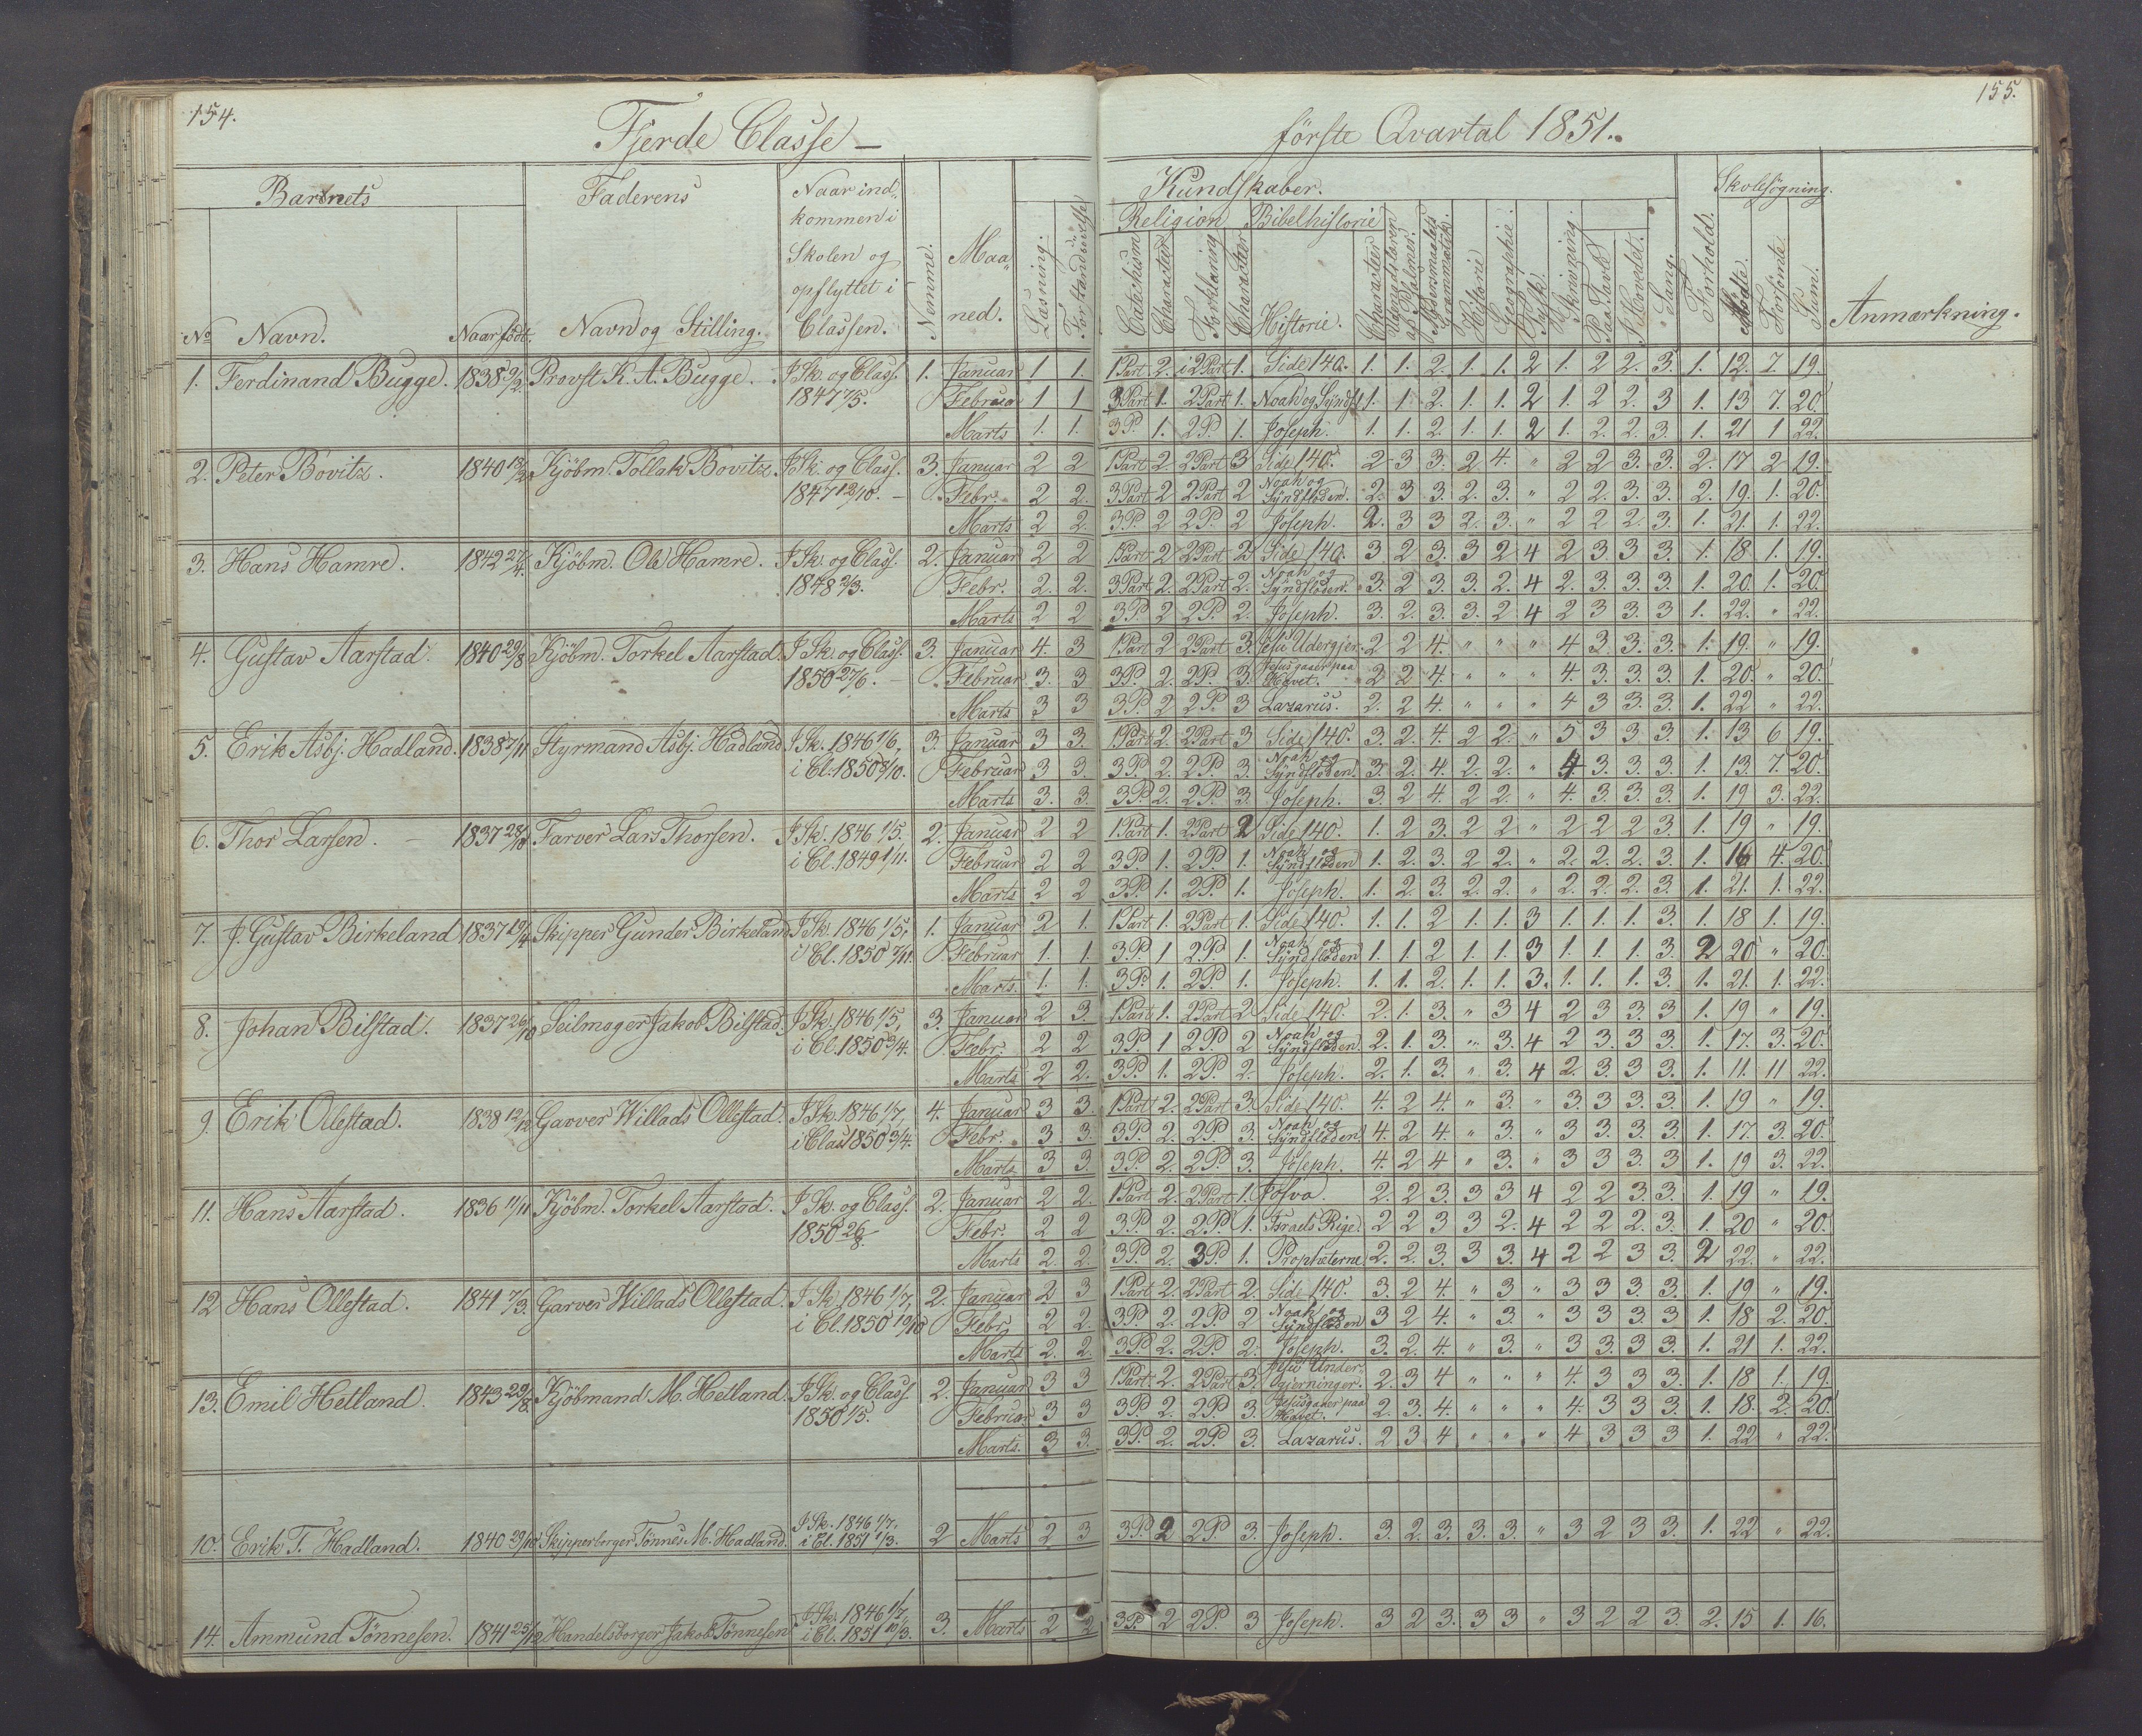 154.
155.
Fjerde Classe —
förste Qvartal 1851.
Barnets
Faderens
Naar ind-
kommen i
Skolen og
opflyttet i
Classen.
Nemme.
Maa-
ned.
Læsning.
Forstandsøvelse
Kundskaber.
Religion
Bibelhistorie
Catechism
Character
Forklaring
Character
Historie.
Character
Udenadslæren af Psalmer.
Modersmaalets Grammatik.
Historie
Geographie.
Tydsk.
Skrivning.
Paa Tavle
I Hovedet.
Sang.
Forhold.
Skolesøgning.
Mødte.
Forsömte
Sum.
Anmærkning.
No Navn. Naar födt. Navn og Stilling.
1. Ferdinand Bugge. 1838 9/2. Provst K. A. Bugge. I Sk. og Class. 1. Januar 1 1. 1 Part 2. i 2 Part 1. Side 140. 1. 1. 2. 1. 1. 2 1. 2 2. 3. 1. 12. 7. 19.
1847 7/5. Februar 1 1 3 Part 1. 2 Part 1. Noah og Syndfl. 1. 1 2. 1. 1. 2 1. 2 2. 3 1. 13 7. 20.
Marts 1. 1. 3 P. 1. 2 P. 1. Joseph. 1. 1. 2. 1. 1. 2 1. 2. 2. 3. 1. 21 1 22.
2. Peter Bovitz. 1840 Kjöbm. Tollak Bovitz. I Sk. og Class. 3. Januar 2 2 1 Part 2. 2 Part 3 Side 140. 2 3 3. 2 4. " 2 2 3. 3. 2. 17 2 19.
1847 12/10. — Febr. 2 2. 3 Part 2 2 Part 2 Noah og Syndfloden. 2. 3 3. 2. 3. " 2 2. 3. 3. 2. 19. 1. 20.
Marts 2 2. 3 P. 2 2 P. 2 Joseph. 2. 3 3 2. 3. " 2 2 2. 3. 1. 21. 1. 22.
3. Hans Hamre. 1842 27/4. Kjöbm. Ole Hamre. I Sk. og Class. 2. Januar 2 2 1 Part 2 2 Part 2 Side 140. 3 2 3. 3 2 4 2 3 3 3. 1. 18 1. 19.
1848 2/3. Febr. 2. 2. 3 Part 2. 2 Part 2. Noah og Syndfloden. 3. 2 3. 3. 2. 4 2. 3. 3. 3. 1. 20. 1. 20.
Marts 2 2 3 P. 2 2 P. 2. Joseph. 3. 2. 3. 3. 2 4 2 3 3 3 1. 22. " 22.
4. Gustav Aarstad. 1840 29/8 Kjöbm. Torkel Aarstad. I Sk. og Class. 3. Januar 4. 3 1 Part 2 2 Part 3. Jesu Udergjer. 2 2 4. " " " 4 3. 3. 3. 1. 19. " 19.
1850 27/6. — Februar 3. 3 3 P. 2. 2 P. 3. Jesus gaaer paa Havet. 2 2 4 " " " 4. 3. 3. 3. 1. 20. " 20.
Marts 3 3 3 P. 2 2 P. 3 Lazarus. 2. 2 4. " " " 4 3 3. 3. 1. 22 " 22.
5. Erik Asbj. Hadland. 1838 7/11 Styrmand Asbj. Hadland I Sk. 1846 1/6, 3. Januar 3 3. 1 Part 2. 2 Part 3 Side 140. 3. 2. 4. 2 2. " 5 3 3. 3 1. 13 6 19.
i Cl. 1850 Februar 3 3. 3 P. 2. 2 P. 3. Noah og Syndfloden. 3. 2. 4. 2. 2. " 4. 3. 3. 3. 1. 13. 7. 20.
Marts 3. 3. 3 P. 2. 2 P. 3. Joseph. 3. 2 4. 2 2. " 4. 3. 3. 3. 1. 19 3. 22.
6. Thor Larsen. — 1837 28/10 Farver Lars Thorsen. I Sk. 1846 1/5. 2. Januar 2 2 1 Part 1. 2 Part 2 Side 140. 1. 2 3. 2 2 " 2 2 2 3. 1. 19 " 19.
i Cl. 1849 1/11. Februar 2 2 3 P. 1. 2 P. 1. Noah og Syndfloden 1. 2. 3. 2 2. " 2. 2. 2. 3. 1. 16 4. 20.
Marts 2 2 3 P. 1. 2 P. 1. Joseph. 1. 2. 3. 2. 2. " 2. 2. 2. 3. 1. 21. 1. 22.
7. J. Gustav Birkeland 1837 19/4 Skipper Gunder Birkeland I Sk. 1846 1/5, 1. Januar 2 1. 1 Part 1. 2 Part 1. Side 140. 1. 1. 2 1. 1. 3 1. 1. 1. 3. 1. 18 1. 19.
i Cl. 1850 Februar 1. 1. 3 P. 1 2 P. 1. Noah og Syndfloden 1. 1 2 1. 1. 3 1. 1. 1. 3. 2 20 " 20.
Marts. 1. 1. 3 P. 1. 2 P. 1. Joseph. 1. 1. 2. 1. 1. 3. 1. 1. 1. 3. 1. 21. 1. 22.
8. Johan Bilstad. 1837 26/10 Seilmager Jakob Bilstad. I Sk. 1846 1/5, 3. Januar 2 3. 1 Part 1. 2 Part 2 Side 140. 2. 1. 3. " 3 4 2 3 3. 3 1. 19 " 19.
i Cl. 1850 3/4. Febr. 2 2 3 P. 1 2 P. 2 Noah og Syndfloden. 2. 1. 3. " 3. 4 2 3. 3. 3. 1. 17. 3. 20.
Marts 2 2. 3 P. 1. 2 P. 2. Joseph. 2. 1 3. " 3. 4 2. 3. 3 3. 1. 11. 11 22.
9. Erik Ollestad. 1838 12/12 Garver Willads Ollestad. I Sk. 1846 1/7, 4. Januar 3 3. 1 Part 2. 2 Part 3. Side 140. 4. 2 4. " 3. " 3. 3. 3. 3. 1. 19 " 19.
i Class 1850 3/4. Febr. 3. 3. 3 P. 2. 2 P. 3. Noah og Syndfloden. 4. 2 4. " 3. " 3 3. 3. 3. 1. 17. 3. 20.
Marts 3 3. 3 P. 2. 2 P. 3. Joseph. 4. 2 4 " 3. " 3 3 3. 3 1. 19 3. 22.
11. Hans Aarstad. 1836 11/11 Kjöbm. Torkel Aarstad. I Sk. og Class. 2. Januar 2 2. 1 Part 2. 2 Part 1. Josva. 2. 2 3. 3 3 4 2 2 3. 3. 1. 19 " 19.
1850 26/8. Febr. 2 2 3 P. 2. 2 P. 1. Israels Rige. 2 2 3 3 2. 4 2 2 2. 3. 1. 20 " 20.
Marts 2. 2. 3 P. 2. 3 P. 1. Propheterne. 2. 2. 3. 3 3. 4 2 2 3 3. 2 22. " 22.
12 Hans Ollestad. 1841 7/3. Garver Willads Ollestad. I Sk. 1846 1/7, 2. Januar 2 3 1 Part 2. 2 Part 2. Side 140. 3. 2 4. " 3 " 3 3 3. 3. 1. 19 " 19.
i Cl. 1850 19/10 Febr. 2 2. 3 P. 2. 2 P. 2 Noah og Syndfloden 3 2 4. " 3. " 3 3. 3. 3 1. 18 2. 20.
Marts 2. 2. 3 P. 2. 2 P. 2. Joseph. 3. 2. 4. " 3. " 3 3. 3. 3. 1. 21 1. 22.
13. Emil Hetland. 1843 29/8. Kjöbmand M. Hetland. I Sk. og Class. 2. Januar 3 3 1 Part 2. 2 Part 3. Jesu Under- gjerninger. 2. 3 4 " " " 4. 3 3 3. 1. 18 1. 19.
1850 1/5. Februar 3 3 3 P. 2. 2 P. 3. Jesus gaaer paa Havet. 2. 3. 4. " " " 4. 3 3 3. 1. 18. 2. 20.
Marts. 3 3. 3 P. 2. 2 P. 3. Lazarus. 2 3 4 " " " 4 3 3 3 1. 22 " 22.
10. Erik T. Hadland. 1840 29/10 Skipperborger Tönnes M. Hadland. I Sk. 1846 1/7. i Cl. 1851 1/3. 2 Marts 2 3 3 P. 2 2 P. 3. Joseph. 3. 2. 3. 3. 3. " 3 2 3 3. 1. 22 " 22.
14. Ammund Tönnesen. 1841 25/12 Handelsborger Jakob Tönnesen I Sk. 1846 1/7. i Cl. 1851 10/3. 3. Marts 2 2 3 P. 2 2 P. 3 Joseph. 3 2 3. 3 3 " 3 2 2 3. 2. 15 1. 16.